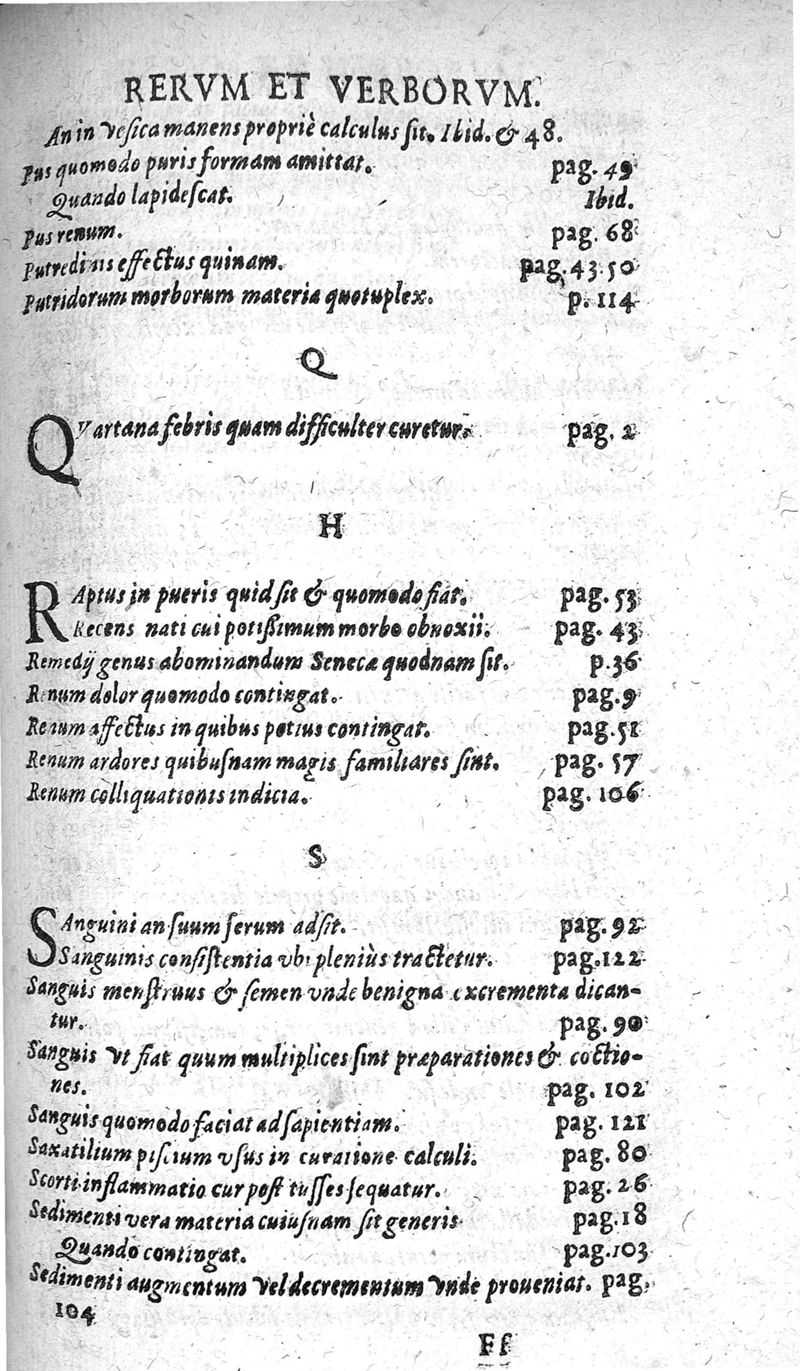 RERVM ET VERBORVM.
An in vesica manens propriè calculus sit. Ibid. & 48.
Pus quomodo puris formam amittat. pag. 49
Quando lapidescat. Ibid.
Pus renum. pag. 68
Putredinis effectus quinam. pag. 43 50
Putridorum morborum materia quotuplex. p. 114
Q
QVartana febris quam difficulter curetur. pag. 2
H
RAptus in pueris quid sit & quomodo fiat. pag. 53
Recens nati cui potißimum morbo obnoxii. pag. 43
Remedij genus abominandum Senecæ quodnam sit. p. 36
Renum dolor quomodo contingat. pag. 9
Renum affectus in quibus potius contingat. pag. 51
Renum ardores quibusnam magis familiares sint. pag. 57
Renum colliquationis indicia. pag. 106
S
SAnguini an suum serum adsit. pag. 92
Sanguinis consistentia vbi pleniùs tractetur. pag. 122
Sanguis menstruus & semen vnde benigna excrementa dican-
tur. pag. 90
Sanguis vt fiat quum multiplices sint præparationes & coctio-
nes. pag. 102
Sanguis quomodo faciat ad sapientiam. pag. 121
Saxatilium piscium vsus in curatione calculi. pag. 80
Scorti inflammatio cur post tusses sequatur. pag. 26
Sedimenti vera materia cuiusnam sit generis pag. 18
Quando contingat. pag. 103
Sedimenti augmentum vel decrementum vnde proueniat. pag.
104
Ff